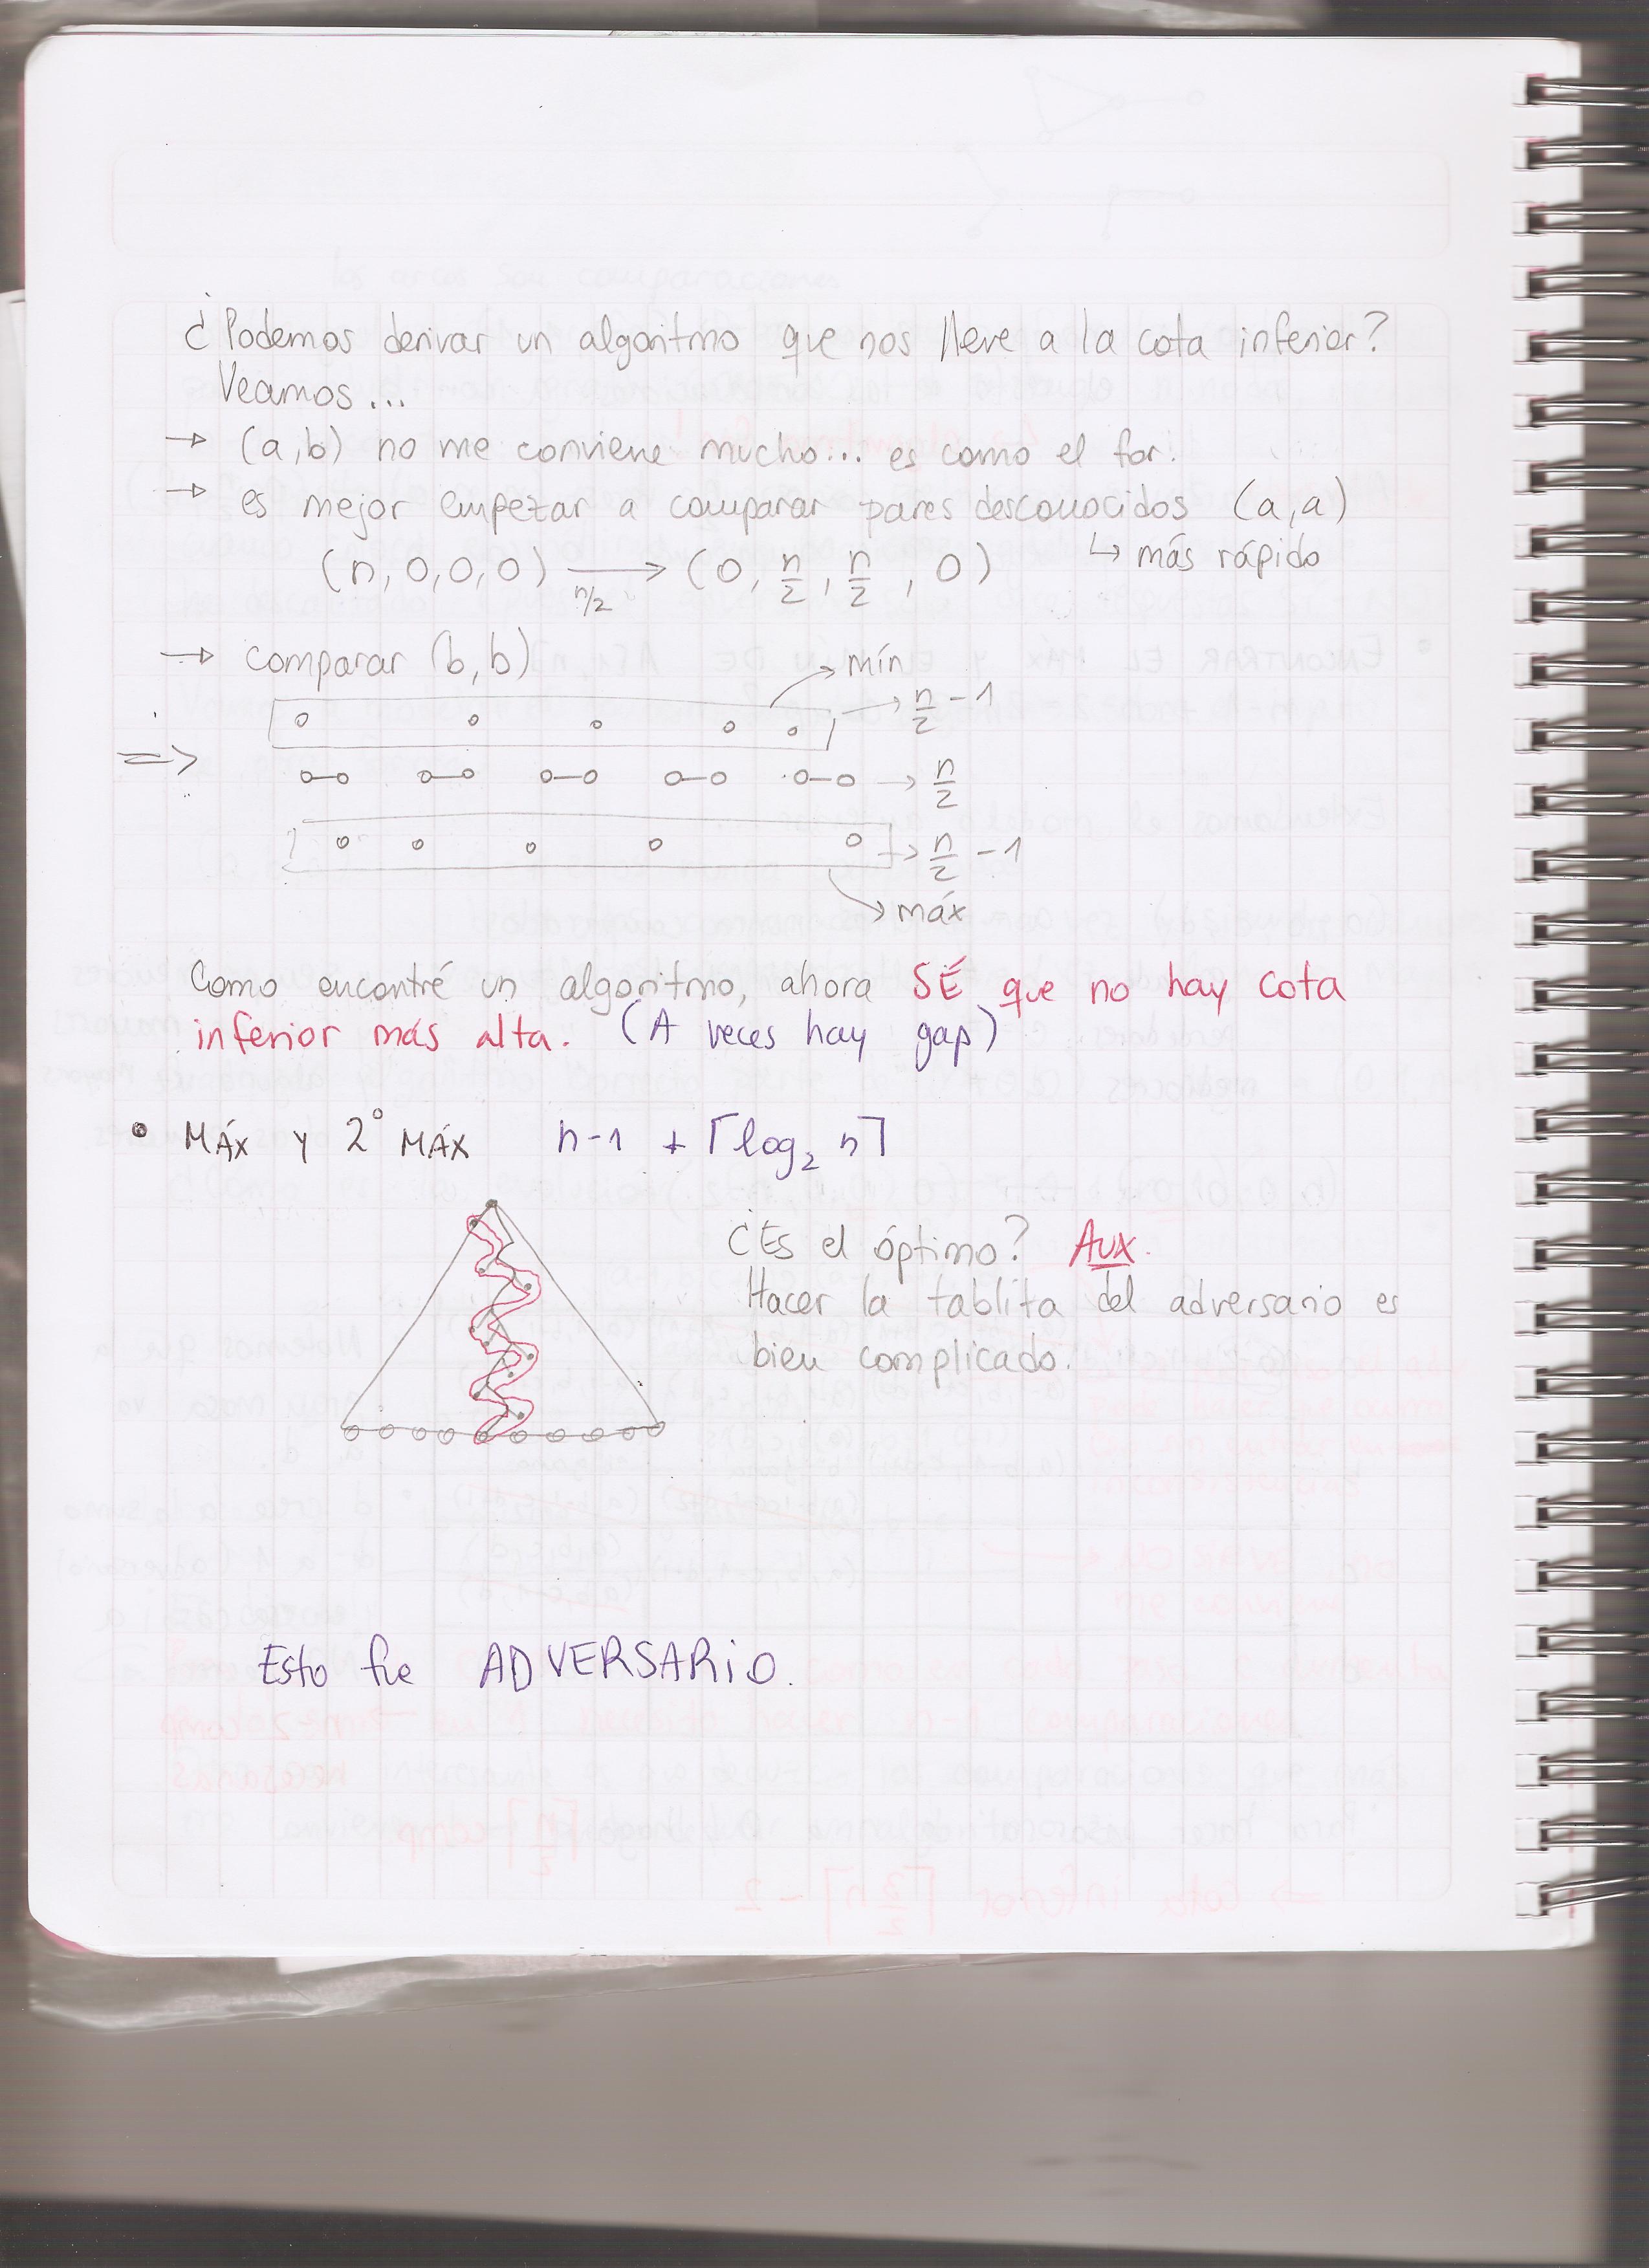 ¿Podemos derivar un algoritmo que nos lleve a la cota inferior?
Veamos...
→ (a,b) no me conviene mucho... es como el for.
→ es mejor empezar a comparar pares desconocidos (a,a)
↳ más rápido
(n,0,0,0) →n/2 (0, n/2, n/2, 0)
→ comparar (b,b)
→ mín
→ n/2 - 1
=> → n/2
→ n/2 - 1
→ máx
Como encontré un algoritmo, ahora SÉ que no hay cota
inferior más alta. (A veces hay gap)
• MÁX Y 2° MÁX n-1 + ⌈log₂ n⌉
¿Es el óptimo? AUX.
Hacer la tablita del adversario es
bien complicado.
Esto fue ADVERSARIO.